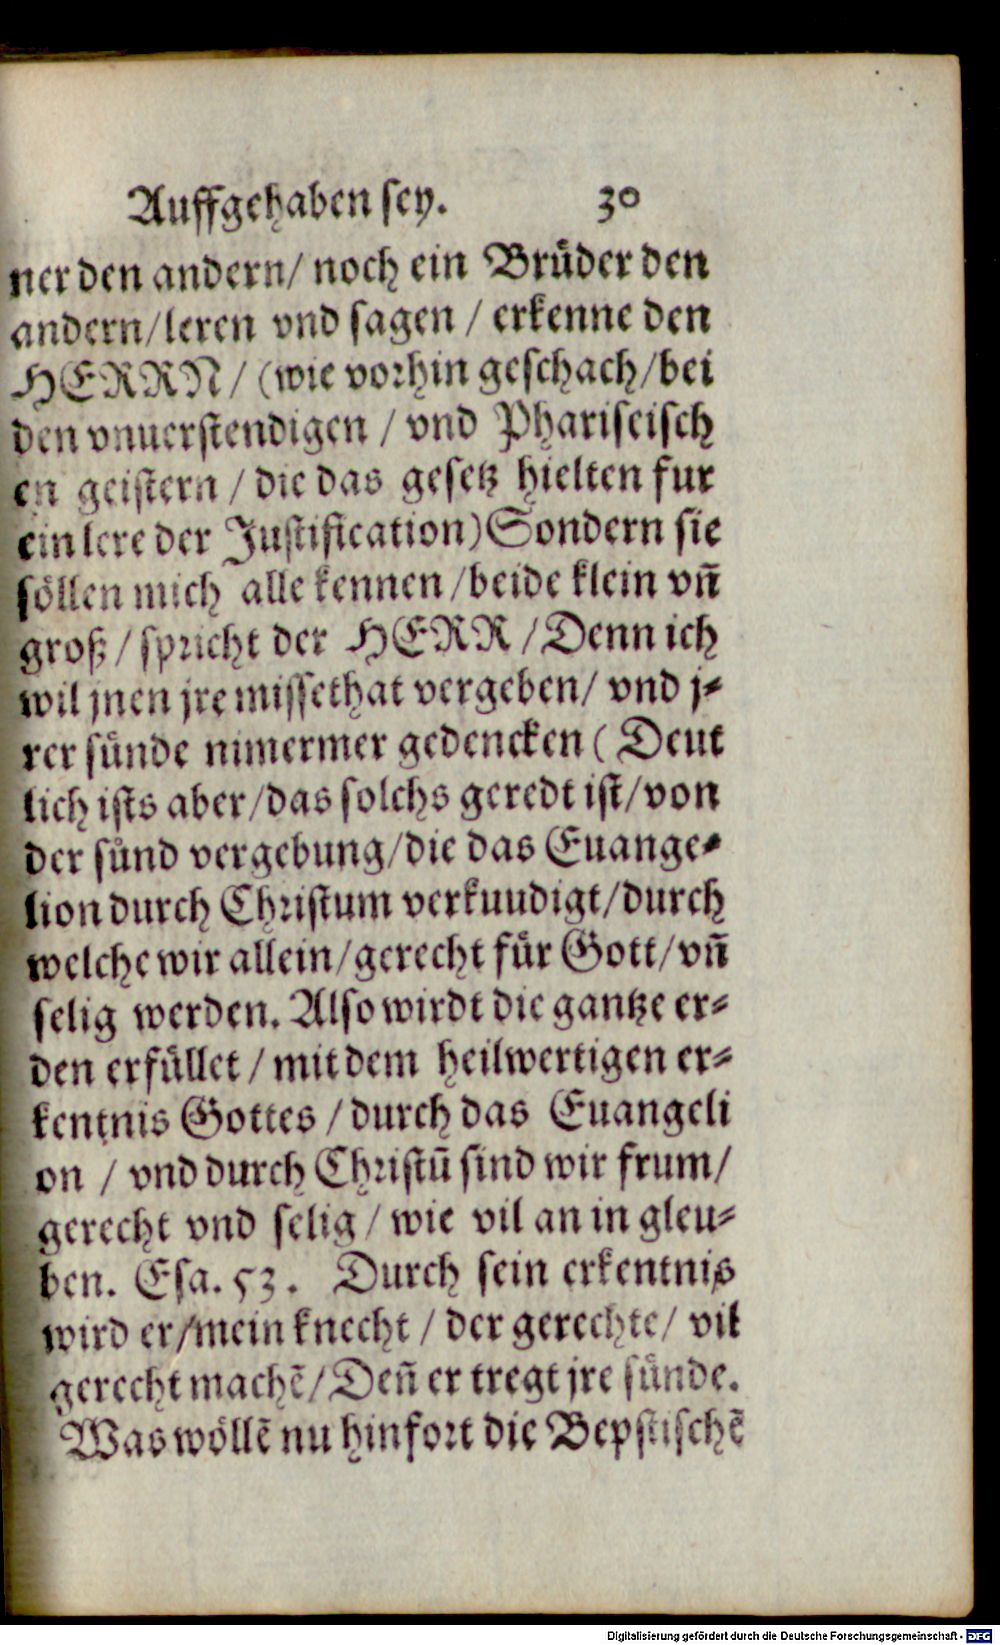 Auffgehaben sey. 30
ner den andern/ noch ein Brůder den
andern/leren vnd sagen / erkenne den
HERRN/ (wie vorhin geschach/bei
den vnuerstendigen / vnd Phariseisch
en geistern / die das gesetz hielten fur
ein lere der Justification) Sondern sie
söllen mich alle kennen /beide klein vñ
groß / spricht der HERR / Denn ich
wil jnen jre missethat vergeben/ vnd j⸗
rer sünde nimermer gedencken ( Deut
lich ists aber/das solchs geredt ist/von
der sünd vergebung/die das Euange⸗
lion durch Christum verkuudigt/durch
welche wir allein/gerecht für Gott/vñ
selig werden. Also wirdt die gantze er⸗
den erfüllet / mit dem heilwertigen er⸗
kentnis Gottes / durch das Euangeli
on / vnd durch Christū sind wir frum/
gerecht vnd selig / wie vil an in gleu⸗
ben. Esa. 53. Durch sein erkentnis
wird er/mein knecht / der gerechte/ vil
gerecht machē/ Deñ er tregt jre sünde.
Was wöllē nu hinfort die Bepstischē
Digitalisierung gefördert durch die Deutsche Forschungsgemeinschaft - DFG